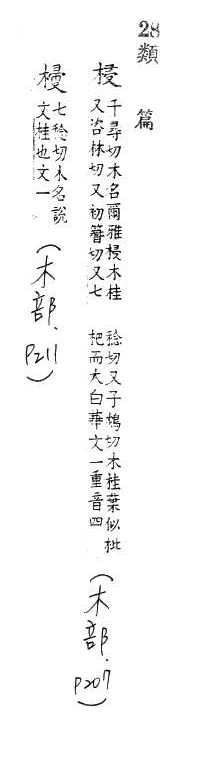 28
類篇
梫
千尋切木名爾雅梫木桂
又咨林切又初簪切又七
稔切又子鴆切木桂葉似枇
杷而大白華文一重音四
(木部.P207)
七稔切木名說
文桂也文一
(木部.P211)